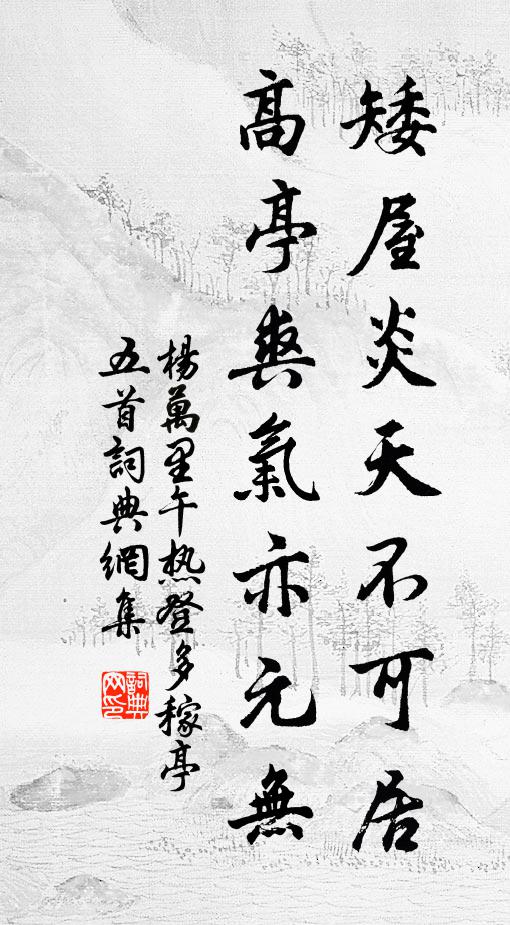 矮屋炎天不可居
高亭爽氣亦元無
楊萬里午热登多稼亭
五首詞典網集
詞典
网印